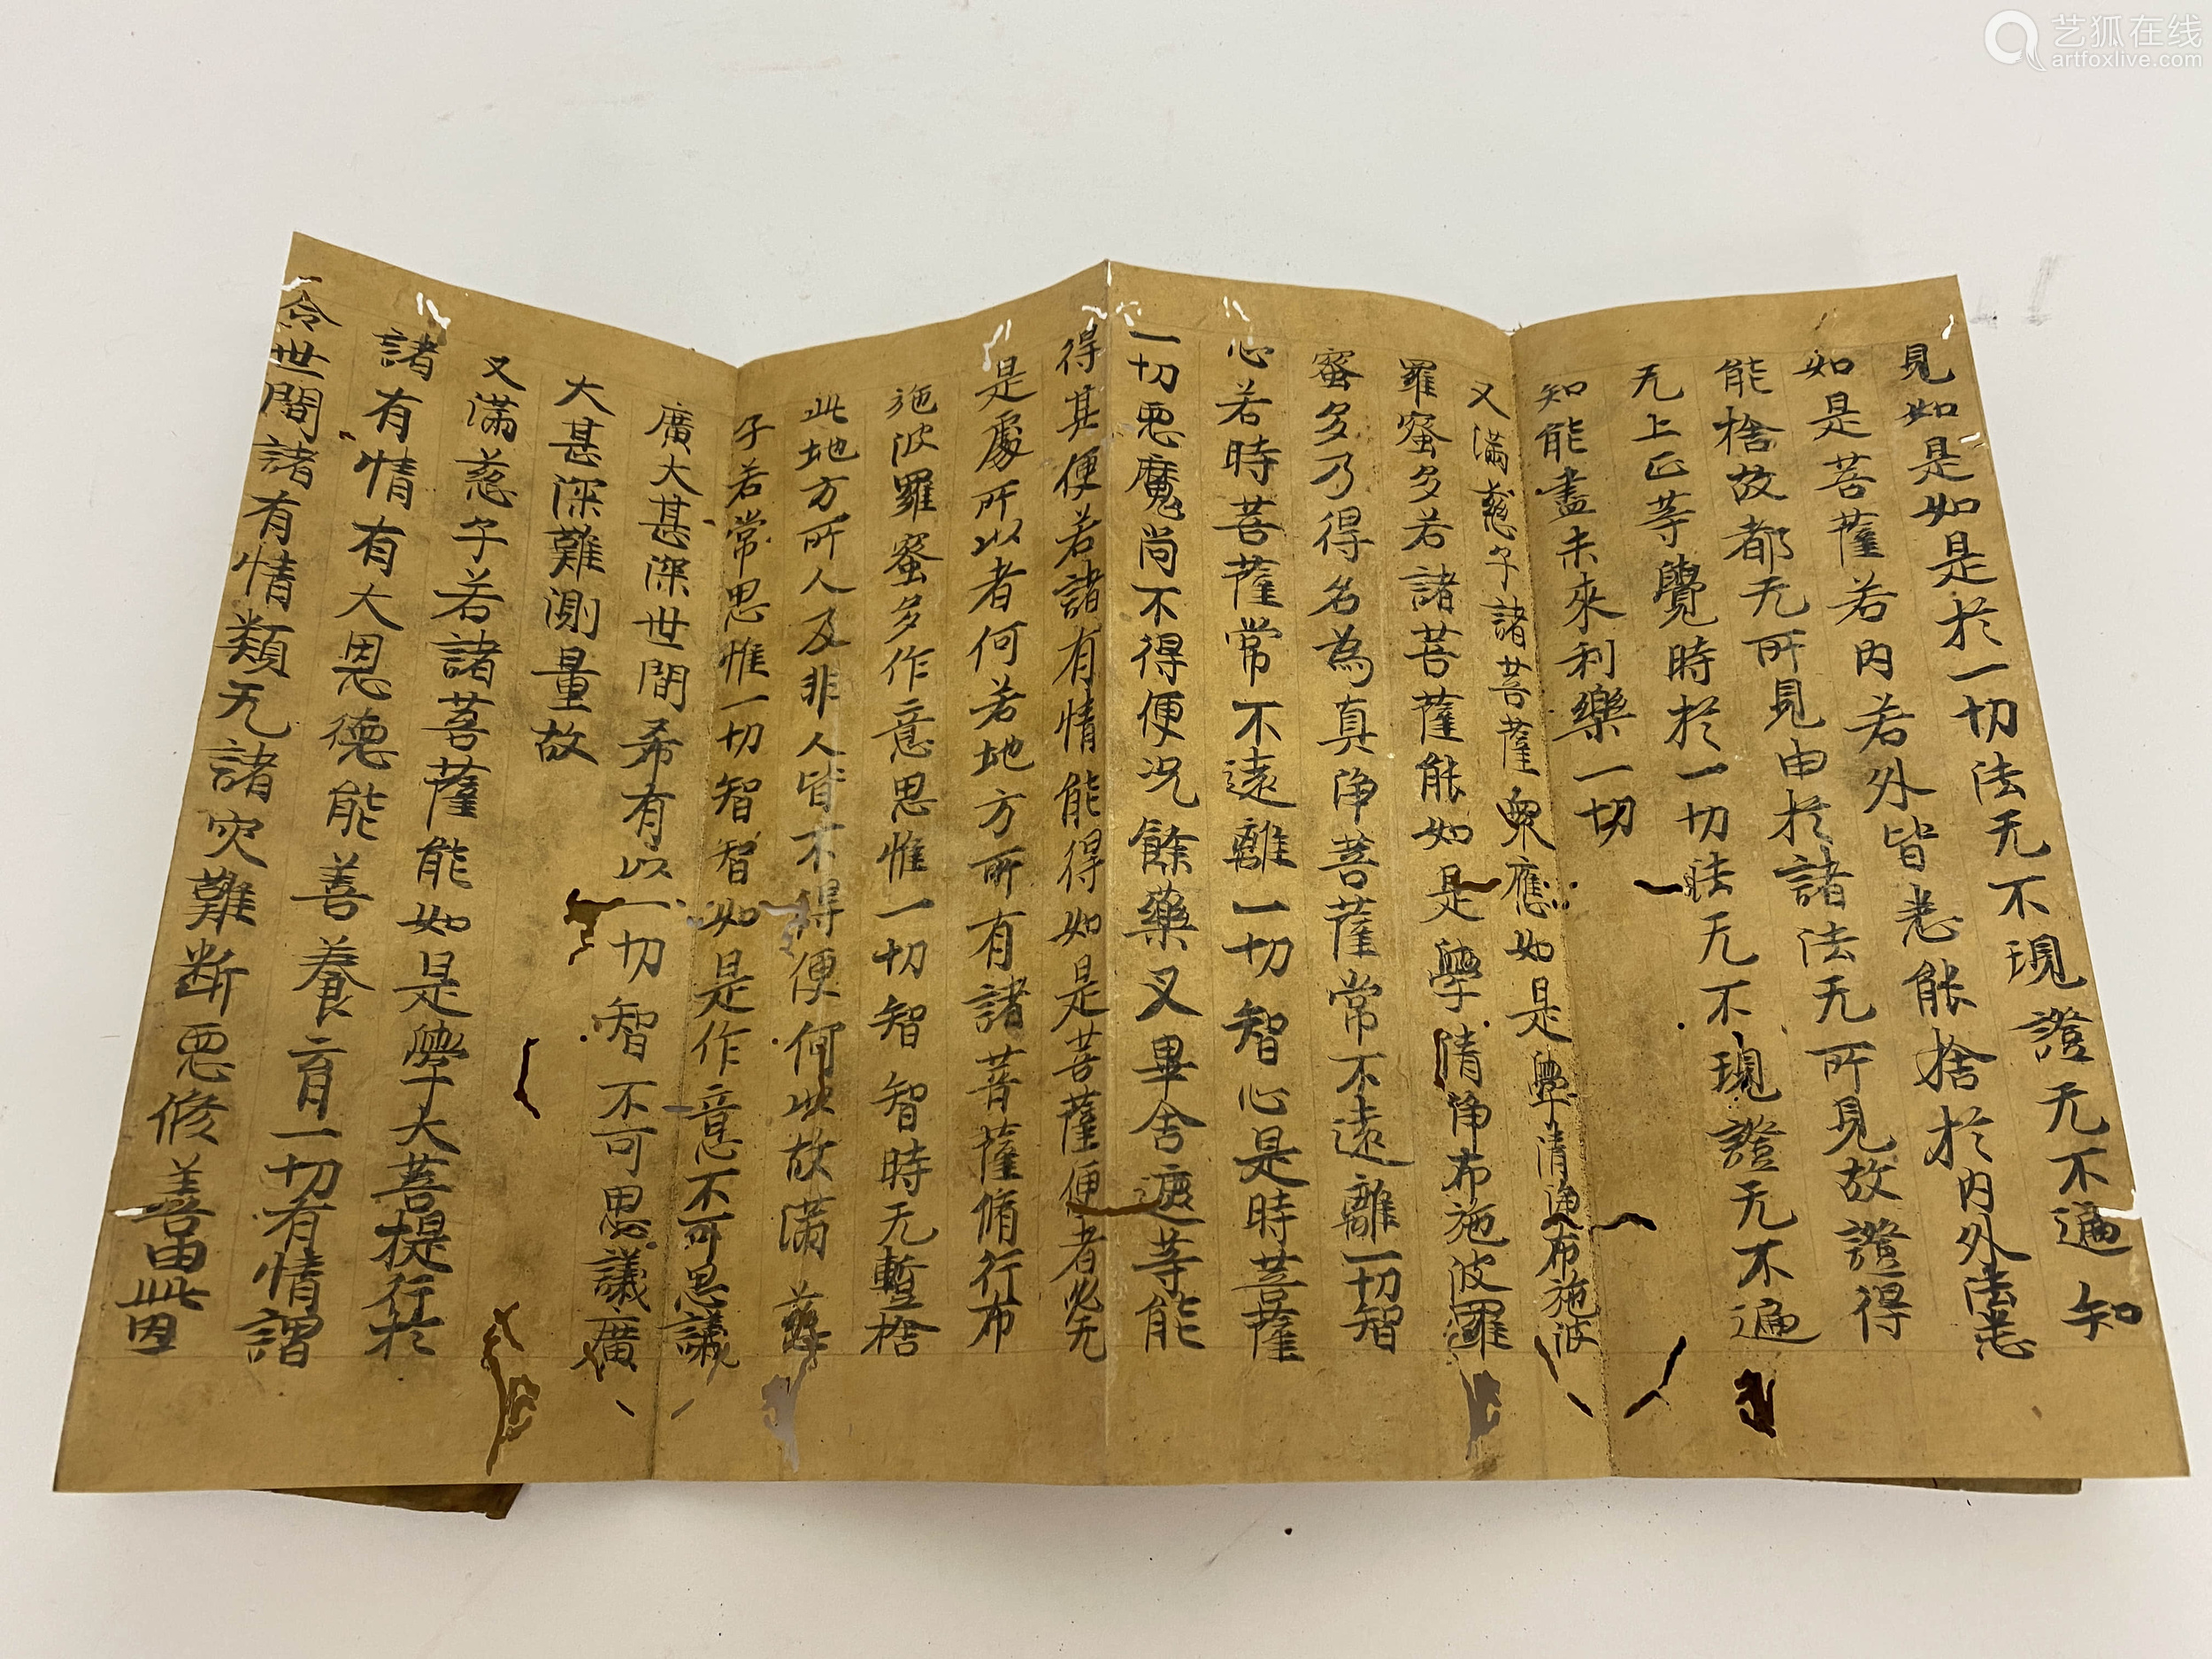 見如是如是於一切法无不現證无不遍知
如是菩薩若內若外皆悉能捨於內外法悉
能捨故都无所見由於諸法无所見故證得
无上正等覺時於一切法无不現證无不遍
知能盡未來利樂一切
又滿慈子諸菩薩眾應如是學清淨布施波
羅蜜多若諸菩薩能如是學清淨布施波羅
蜜多乃得名為真淨菩薩常不遠離一切智
心若時菩薩常不遠離一切智心是時菩薩
一切惡魔尚不得便況餘藥叉畢舍遮等能
得其便若諸有情能得如是菩薩便者必无
是處所以者何若地方所有諸菩薩脩行布
施波羅蜜多作意思惟一切智智時无暫捨
此地方所人及非人皆不得便何以故滿慈
子若常思惟一切智智如是作意不可思議
廣大甚深世間希有以一切智不可思議廣
大甚深難測量故
又滿慈子若諸菩薩能如是學大菩提行於
諸有情有大恩德能善養育一切有情謂
令世間諸有情類无諸灾難斷惡修善由此因
艺狐在线
artfoxlive.com